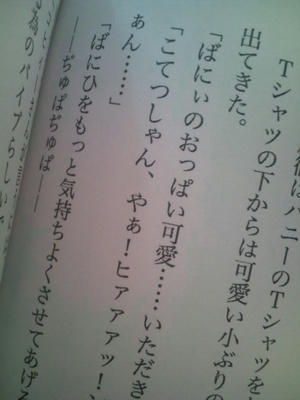 のTシャツを
Tシャツの下からは可愛い小ぶりの
出てきた。
「ばにぃのおっぱい可愛……いただき
「こてつしゃん、やぁ!ヒァァァッ!
ぁん……」
「ばにひをもっと気持ちよくさせてあげる
――ぢゅぱぢゅぱ――
為のバイブらしい